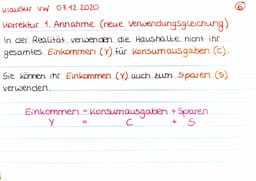 Klausur VW 07.12.2020
6
Korrektur 1. Annahme (neue Verwendungsgleichung)
In der Realität verwenden die Haushalte nicht ihr
gesamtes Einkommen (Y) für Konsumausgaben (C).
Sie können ihr Einkommen (Y) auch zum Sparen (S)
verwenden.
Einkommen = Konsumausgaben + Sparen
Y = C + S